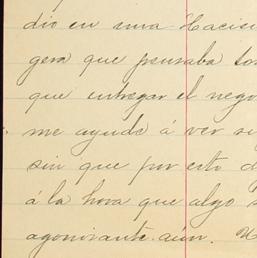 dio en una Hacien
gera que pensaba
que entregar el nego
me ayude á ver si
sin que por esto d
á la hora que algo s
agonizante aún. U